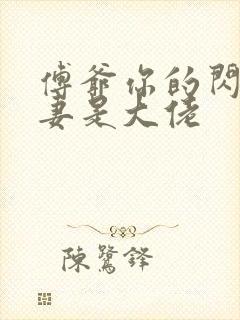 傅爺你的閃
妻是大佬
陳鷺鋒